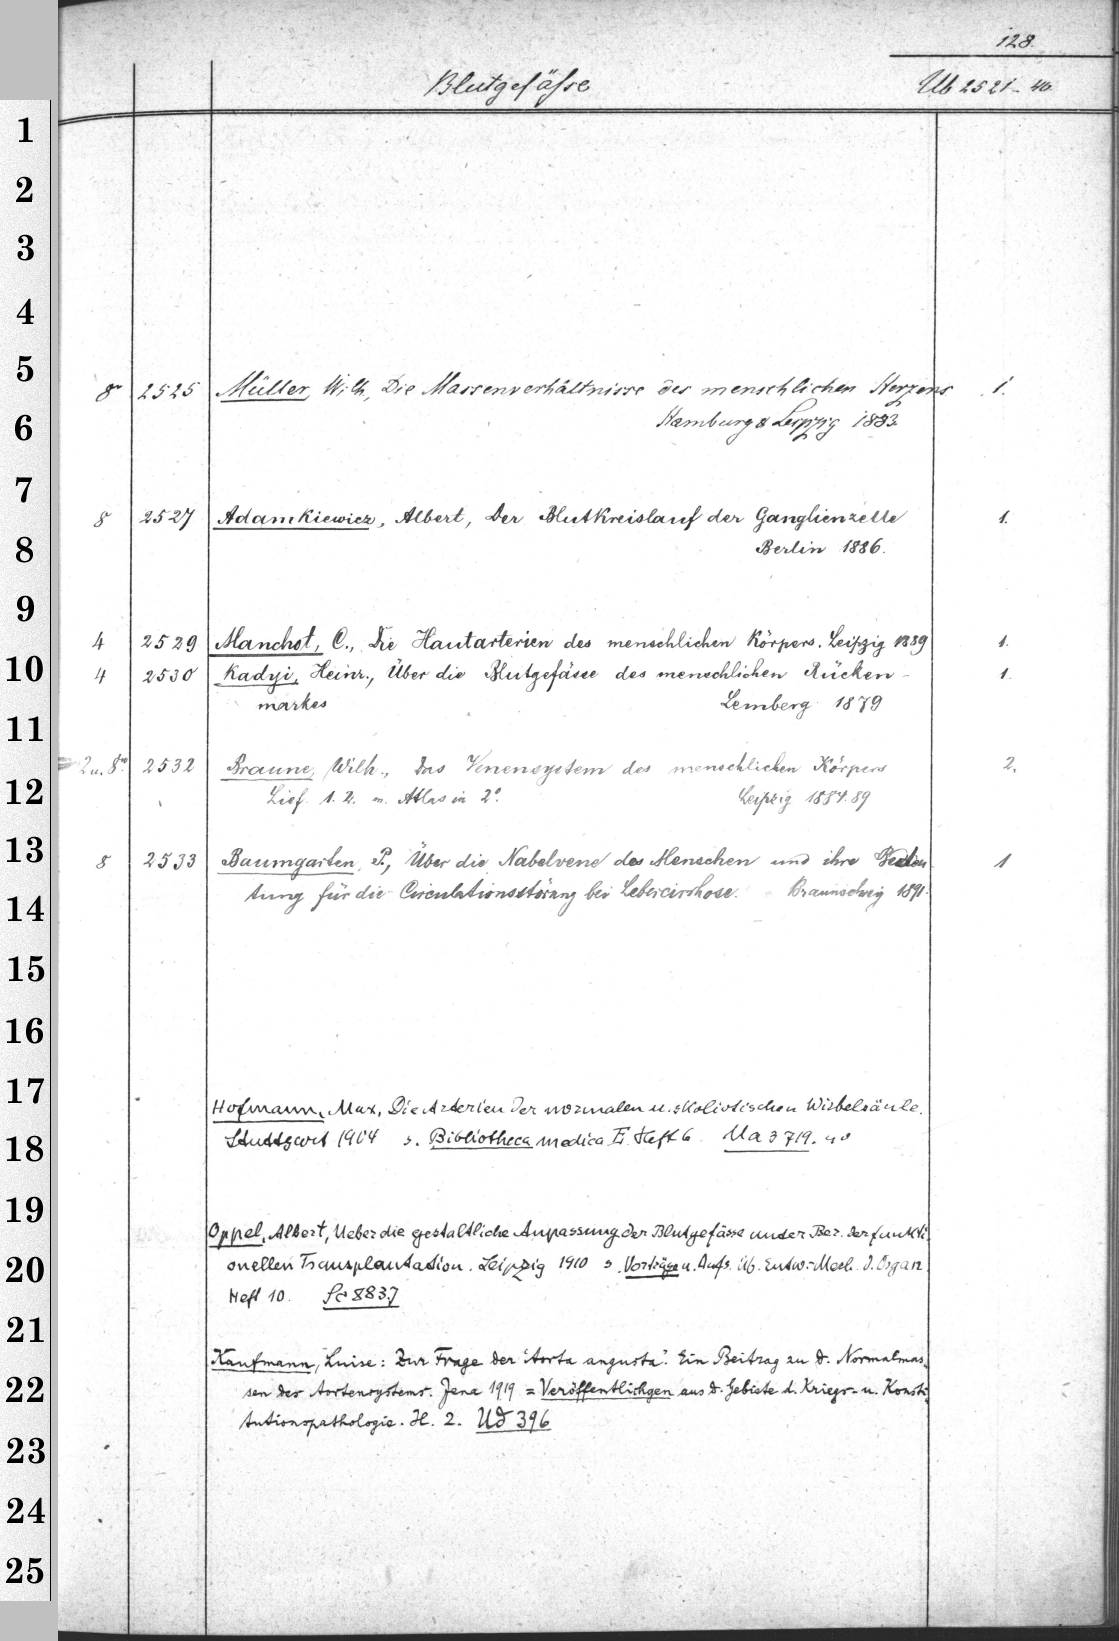 128.
Blutgefässe Ub 2521-40
1
2
3
4
5
8° 2525 Müller, Wilh., Die Massenverhältnisse des menschlichen Herzens 1.
6 Hamburg & Leipzig 1883.
7
8 2527 Adamkiewicz, Albert, Der Blutkreislauf der Ganglienzelle 1.
8 Berlin 1886.
9
4 2529 Manchot, C., Die Hautarterien des menschlichen Körpers. Leipzig 1889 1.
10 4 2530 Kadyi, Heinr., Über die Blutgefässe des menschlichen Rücken- 1.
11 markes Lemberg 1879
2 u. 8° 2532 Braune, Wilh., Das Venensystem des menschlichen Körpers 2.
12 Lief. 1. 2. m. Atlas in 2°. Leipzig 1884.89
13 8 2533 Baumgarten, P., Über die Nabelvene des Menschen und ihre Bedeu- 1
14 tung für die Circulationsstörung bei Lebercirrhose. Braunschweig 1891.
15
16
17
Hofmann, Max, Die Arterien der normalen u. skoliotischen Wirbelsäule.
18 Stuttgart 1904 s. Bibliotheca medica E. Heft 6 Ua 3719. 4°
19
Oppel, Albert, Ueber die gestaltliche Anpassung der Blutgefässe unter Ber. der funkti-
20 onellen Transplantation. Leipzig 1910 s. Vorträge u. Aufs. üb. Entw.-Mech. d. Organ.
Heft 10. Sc 8837
21
Kaufmann, Luise: Zur Frage der "Aorta angusta". Ein Beitrag zu d. Normalmas-
22 sen des Aortensystems. Jena 1919 = Veröffentlichgen aus d. Gebiete d. Kriegs- u. Konsti-
tutionspathologie. H. 2. Ud 396
23
24
25